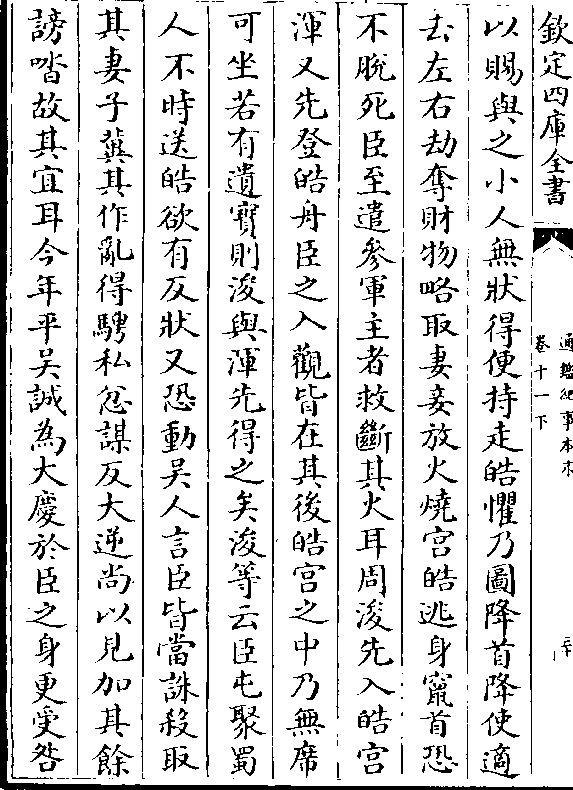 欽定四庫全書
通鑑紀事本末
卷十一下
以賜與之小人無狀得便持走皓懼乃圖降首降使適
去左右劫奪財物略取妻妾放火燒宫皓逃身竄首恐
不脫死臣至遣參軍主者救斷其火耳周浚先入皓宫
渾又先登皓舟臣之入觀皆在其後皓宫之中乃無席
可坐若有遺寳則浚與渾先得之矣浚等云臣屯聚蜀
人不時送皓欲有反狀又恐動吳人言臣皆當誅殺取
其妻子冀其作亂得騁私忿謀反大逆尚以見加其餘
謗㗳故其宜耳今年平吳誠為大慶於臣之身更受咎